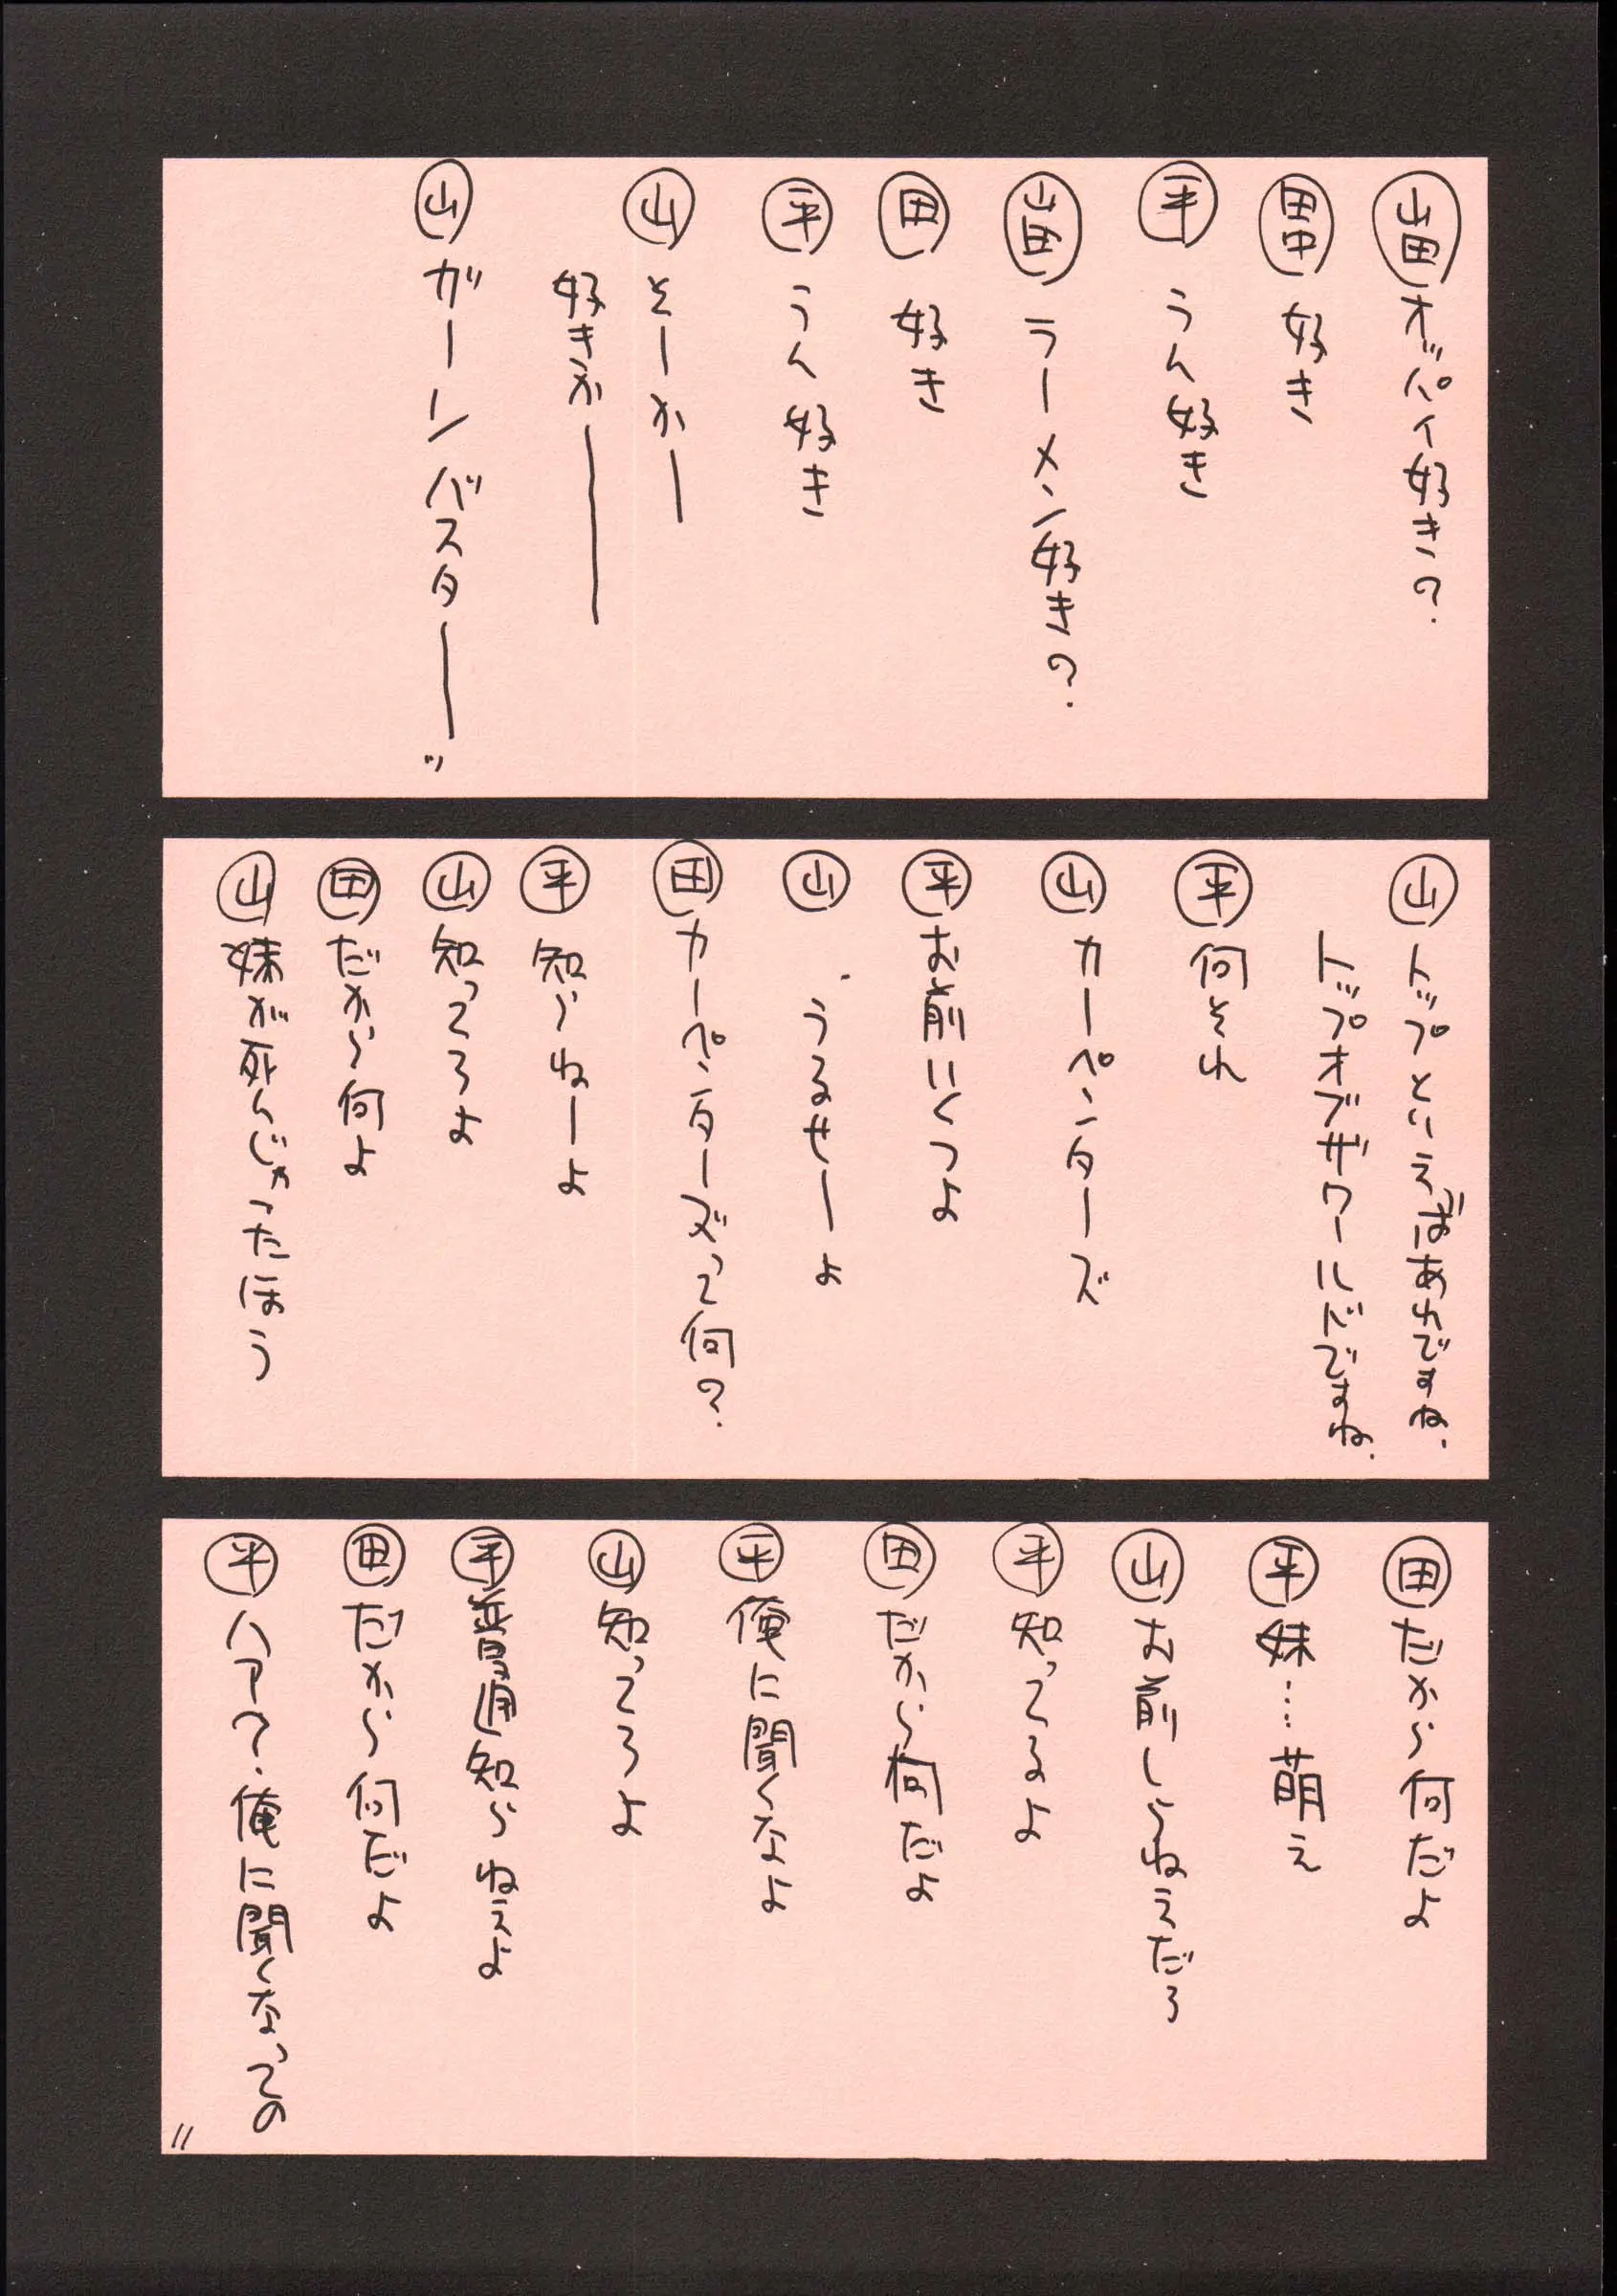 山田 オッパイ好き?
田中 好き
平 うん好き
山田 ラーメン好き?
田 好き
平 うん好き
山 そーかー
好きかー
山 ガーンバスターーッ
山 トップといえばあれですね.
トップオブザワールドですね.
平 何それ
山 カーペンターズ
平 お前いくつよ
山 うるせーよ
田 カーペンターズって何?
平 知らねーよ
山 知ってろよ
田 だから何よ
山 妹が死んじゃったほう
田 だから何だよ
平 妹…萌え
山 お前しらねえだろ
平 知ってるよ
田 だから何だよ
平 俺に聞くなよ
山 知ってろよ
平 普通知らねえよ
田 だから何だよ
平 ハァ?俺に聞くなっての
11